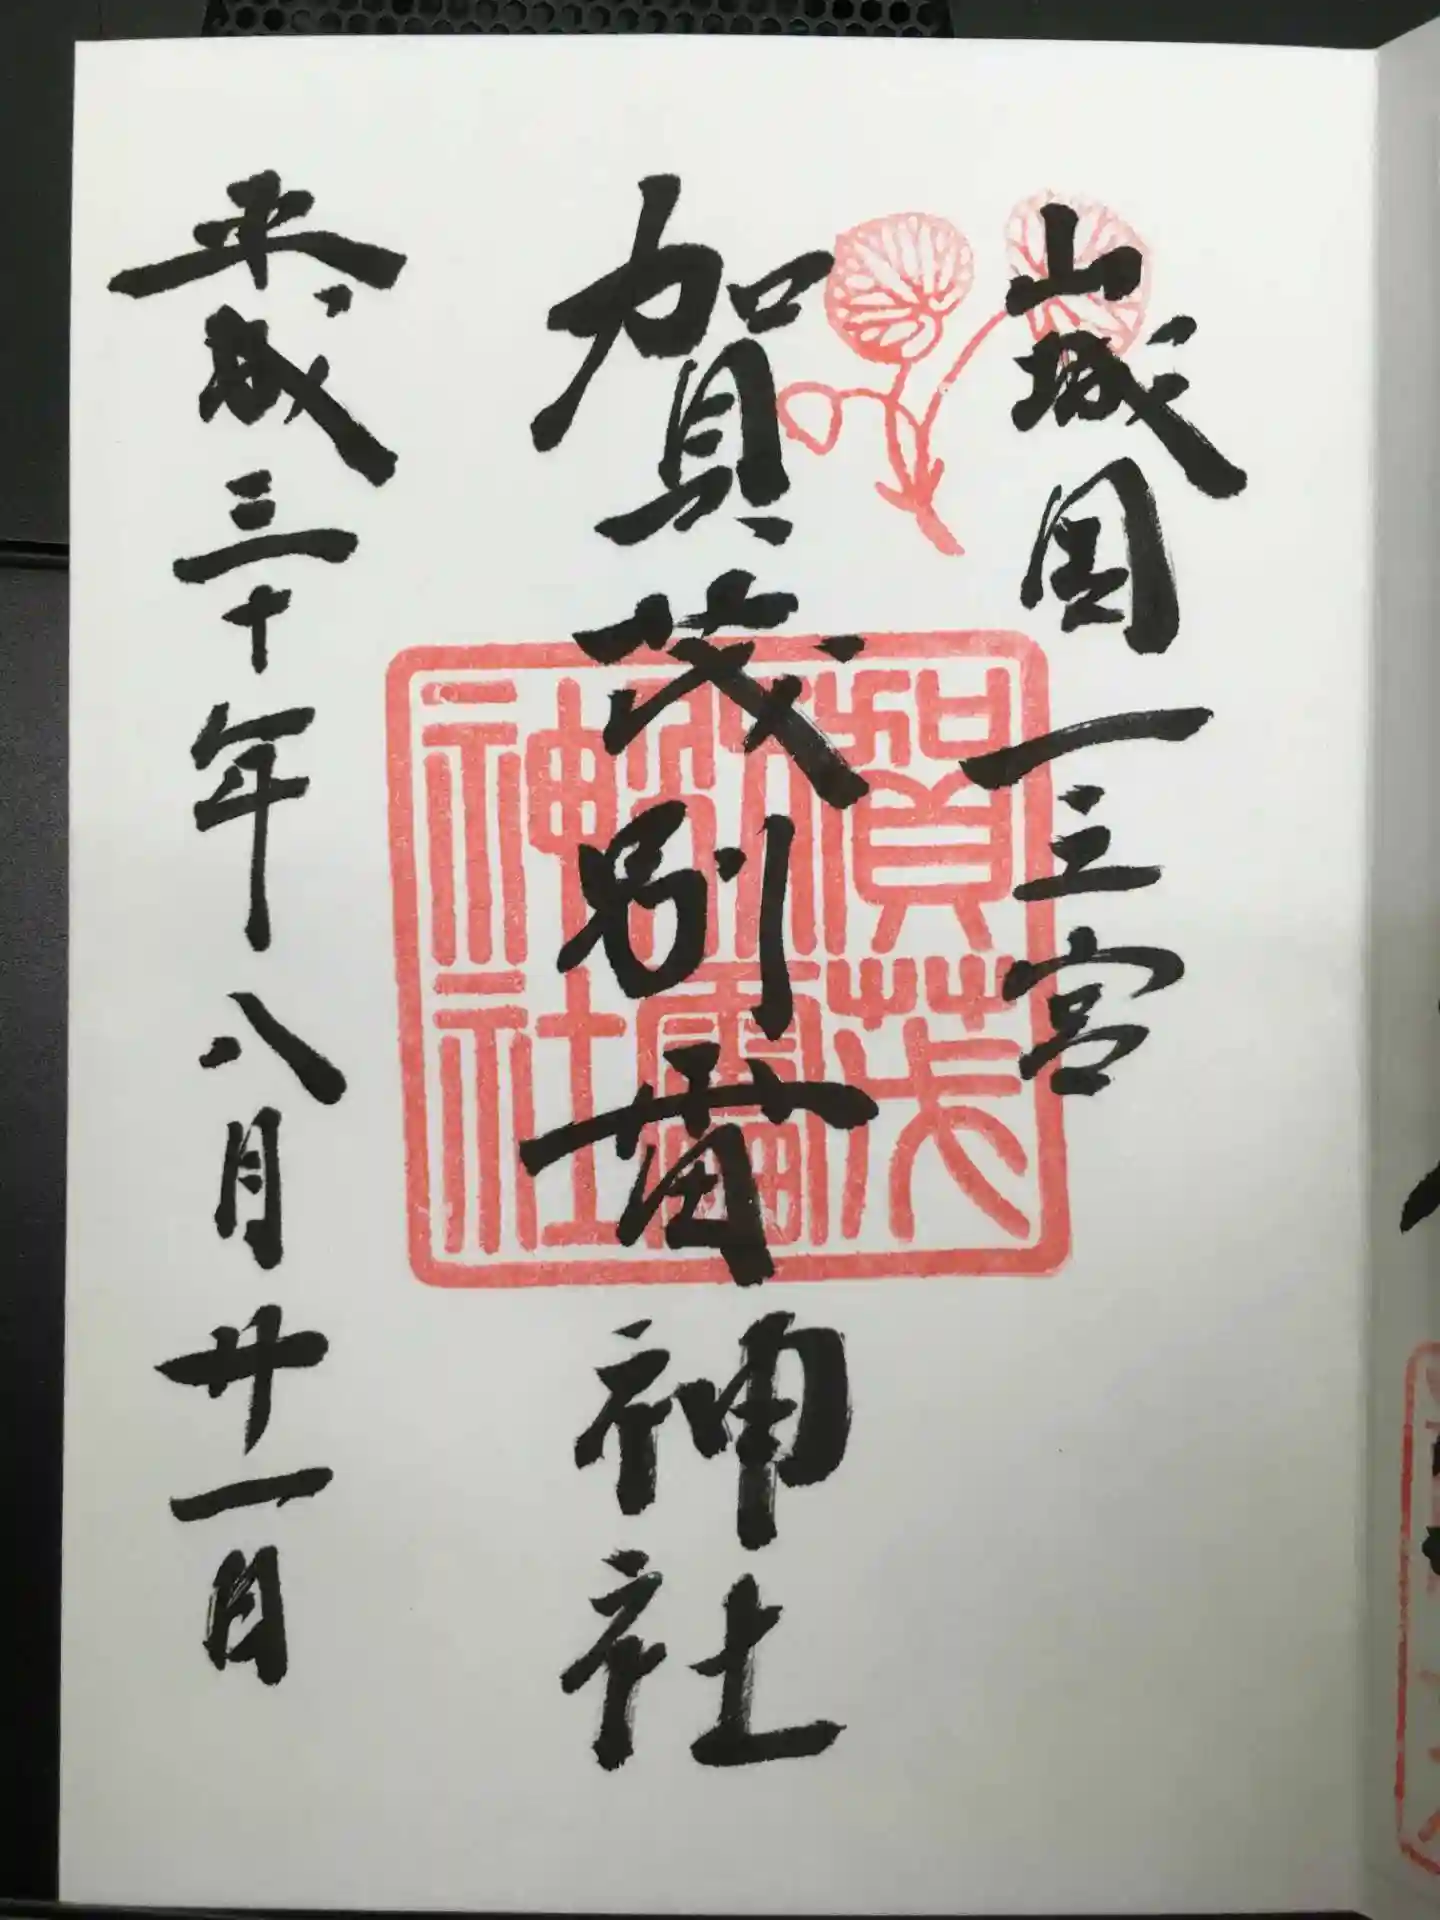 山城国一之宮
賀茂別雷神社
平成三十年八月廿一日
賀茂
別雷
神社